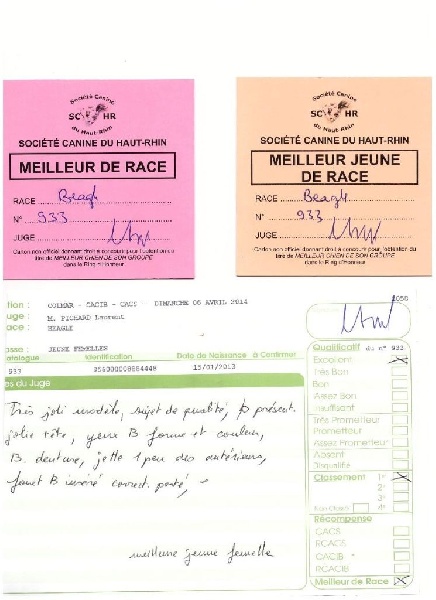 Société Canine
SC HR
du Haut-Rhin
SOCIÉTÉ CANINE DU HAUT-RHIN
MEILLEUR DE RACE
RACE Beagle
N° 933
JUGE
Carton non officiel donnant droit à concourir pour l'obtention du
titre de MEILLEUR CHIEN DE SON GROUPE
dans le Ring d'Honneur
Société Canine
SC HR
du Haut-Rhin
SOCIÉTÉ CANINE DU HAUT-RHIN
MEILLEUR JEUNE
DE RACE
RACE Beagle
N° 933
JUGE
Carton non officiel donnant droit à concourir pour l'obtention du
titre de MEILLEUR CHIEN DE SON GROUPE
dans le Ring d'Honneur
tion : COLMAR - CACIB - CACS - DIMANCHE 06 AVRIL 2014
uge : M. PICHARD Laurent
ace : BEAGLE
asse : JEUNE FEMELLES
atalogue Identification Date de Naissance à Confirmer
933 15/01/2013
es du Juge
Très joli modèle, sujet de qualité, B présent.
jolie tête, yeux B forme et couleur,
B. denture, jette 1 peu des antérieurs,
fouet B inséré correct. porté,
meilleure jeune femelle
1056
Qualificatif du n° 933
Excellent
Très Bon
Bon
Assez Bon
Insuffisant
Très Prometteur
Prometteur
Assez Prometteur
Absent
Disqualifié
Classement 1°
2°
3°
Non Classé 4°
Récompense
CACS
RCACS
CACIB
RCACIB
Meilleur de Race